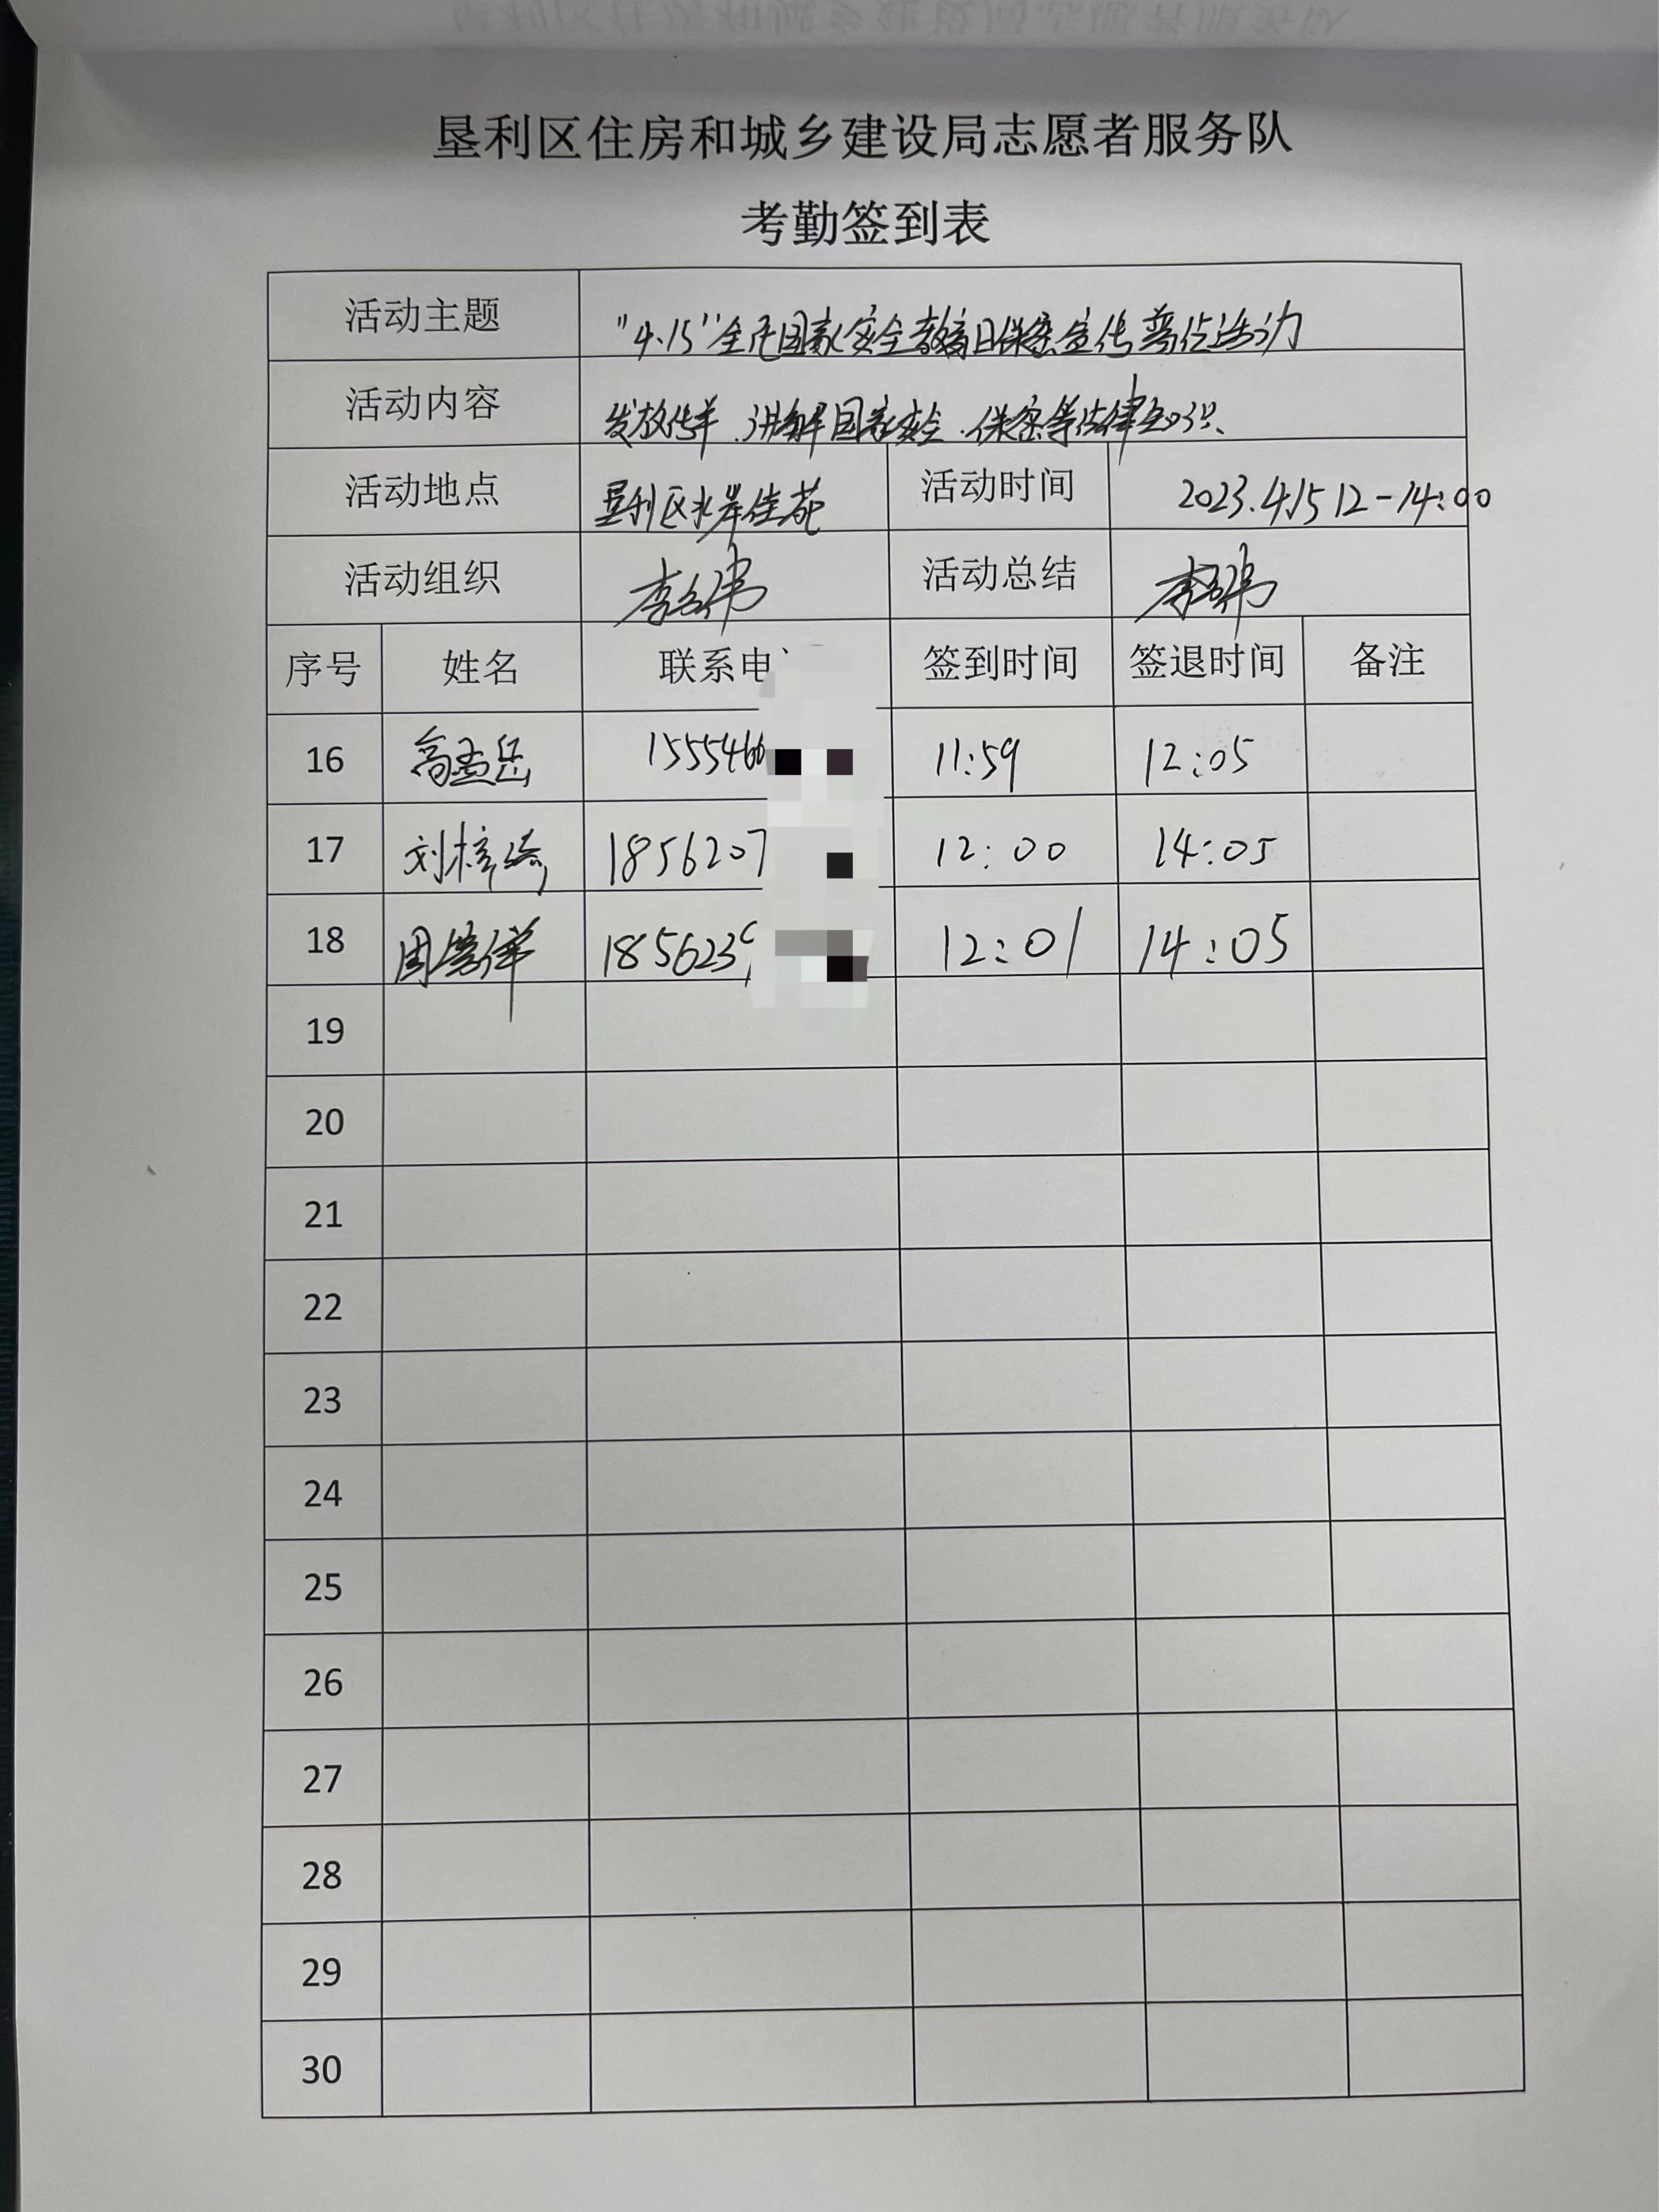 垦利区住房和城乡建设局志愿者服务队
考勤签到表
活动主题 "4.15"全民国家安全教育日保密宣传普法活动
活动内容 发放传单、讲解国家安全、保密等法律知识、
活动地点 垦利区水岸佳苑 活动时间 2023.4.15 12-14:00
活动组织 活动总结
序号 姓名 联系电 签到时间 签退时间 备注
16 高孟岳 1555466 11:59 12:05
17 刘梓琦 1856207 12:00 14:05
18 1856239 12:01 14:05
19
20
21
22
23
24
25
26
27
28
29
30